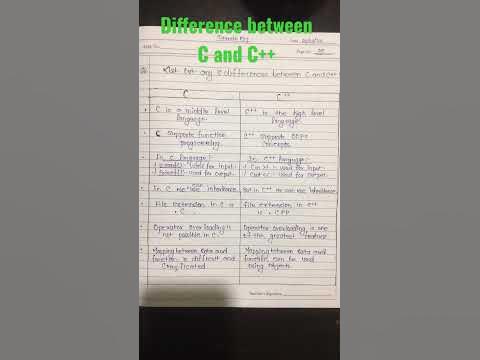 Difference between
C and C++
List out any 8 differences between C and C++
C
C++
C is a middle level
language
C++ is the high level
language
C supports function
programming
C++ supports OOPS
concepts
In C language
Used for input
Used for output
In C++ language
Used for input
Used for output
In C inheritance
But in C++ we can use inheritance
File extension in C is
.C
File extension in C++
is .CPP
Operator overloading is
not possible in C
Operator overloading is one
of the greatest feature
Mapping between data and
function is difficult and
complicated
Mapping between data and
function can be used
using objects
Teacher's Signature